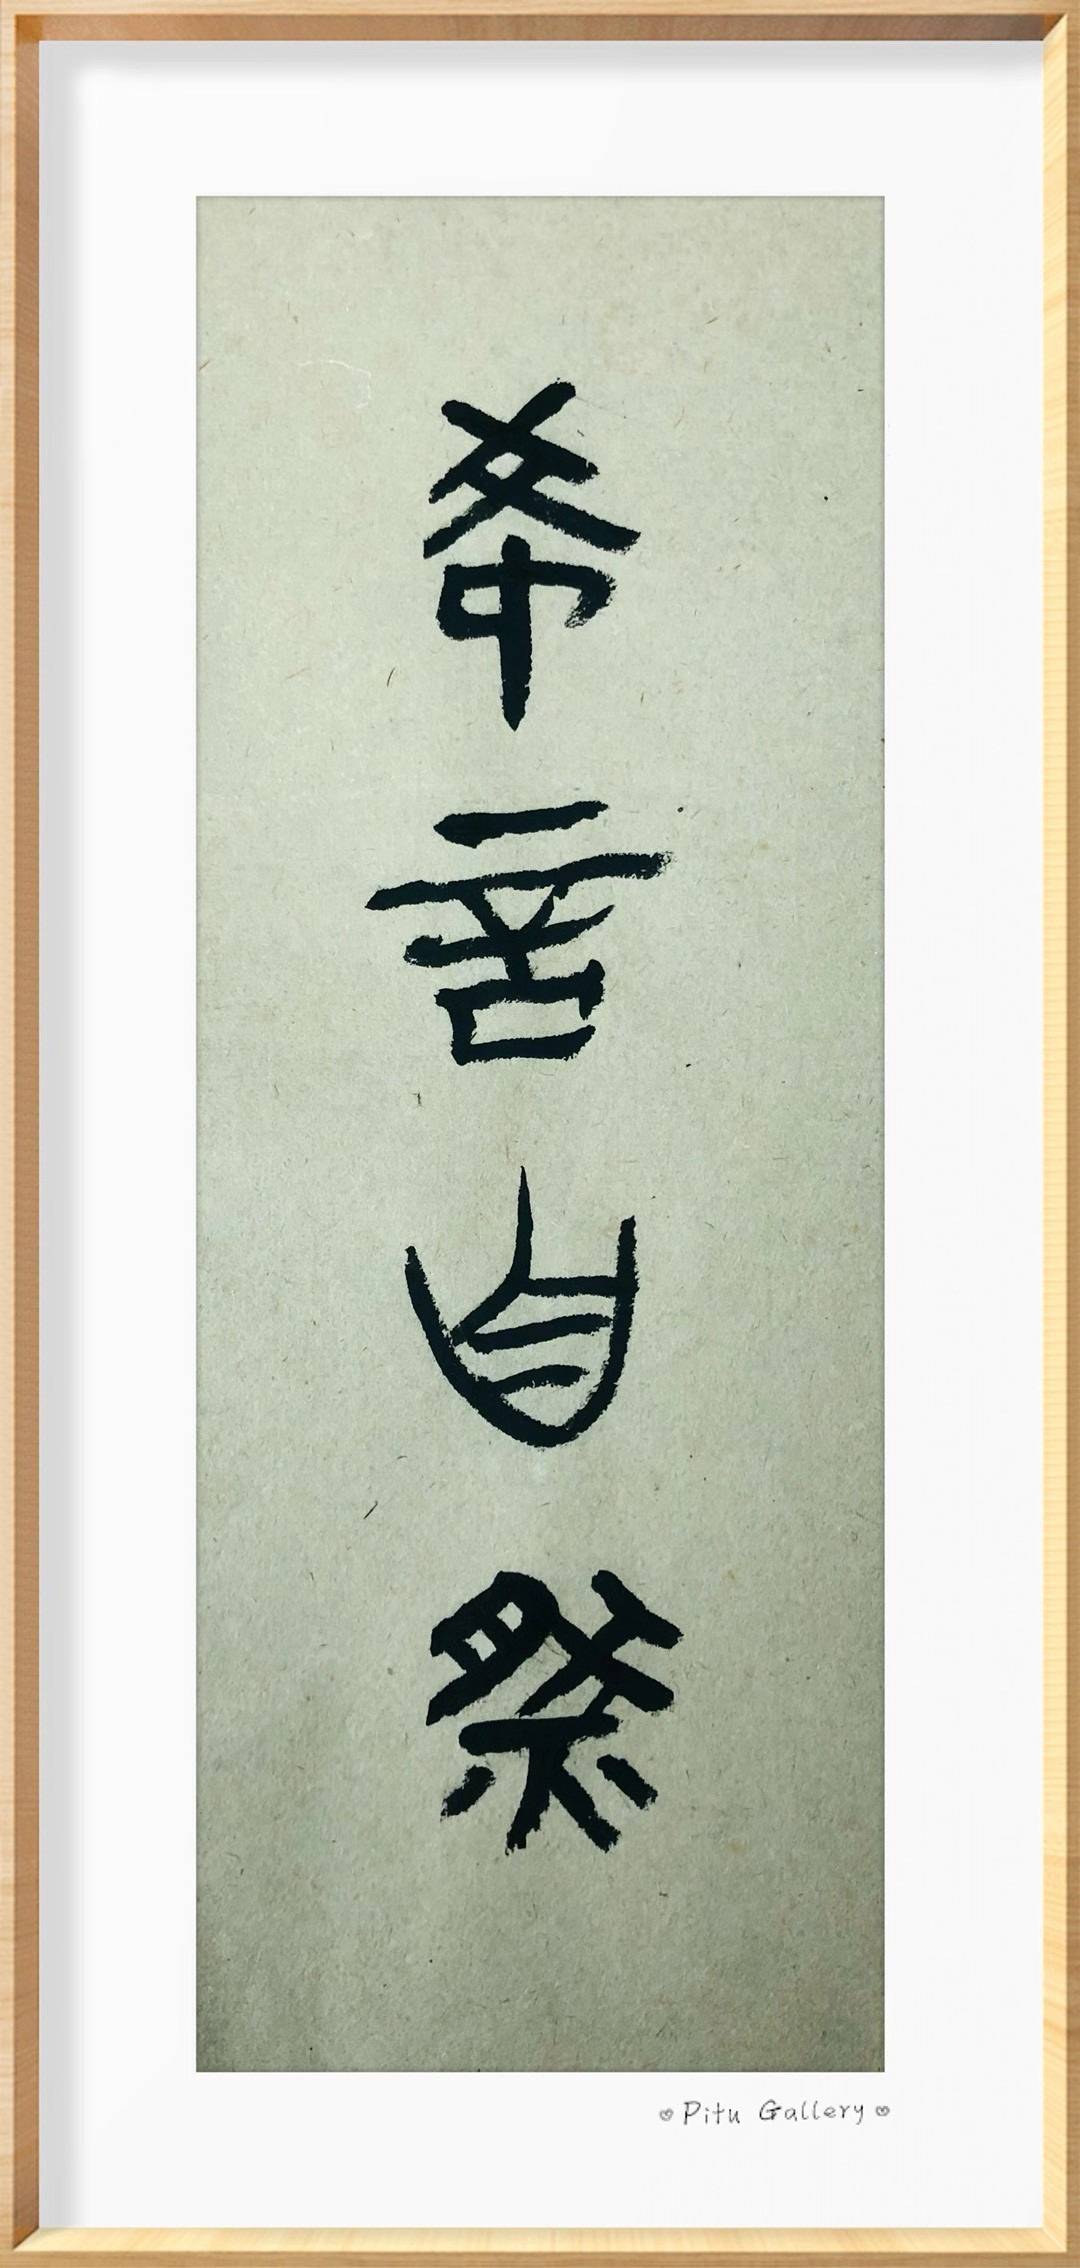 希
言
自
然
Pitu Gallery